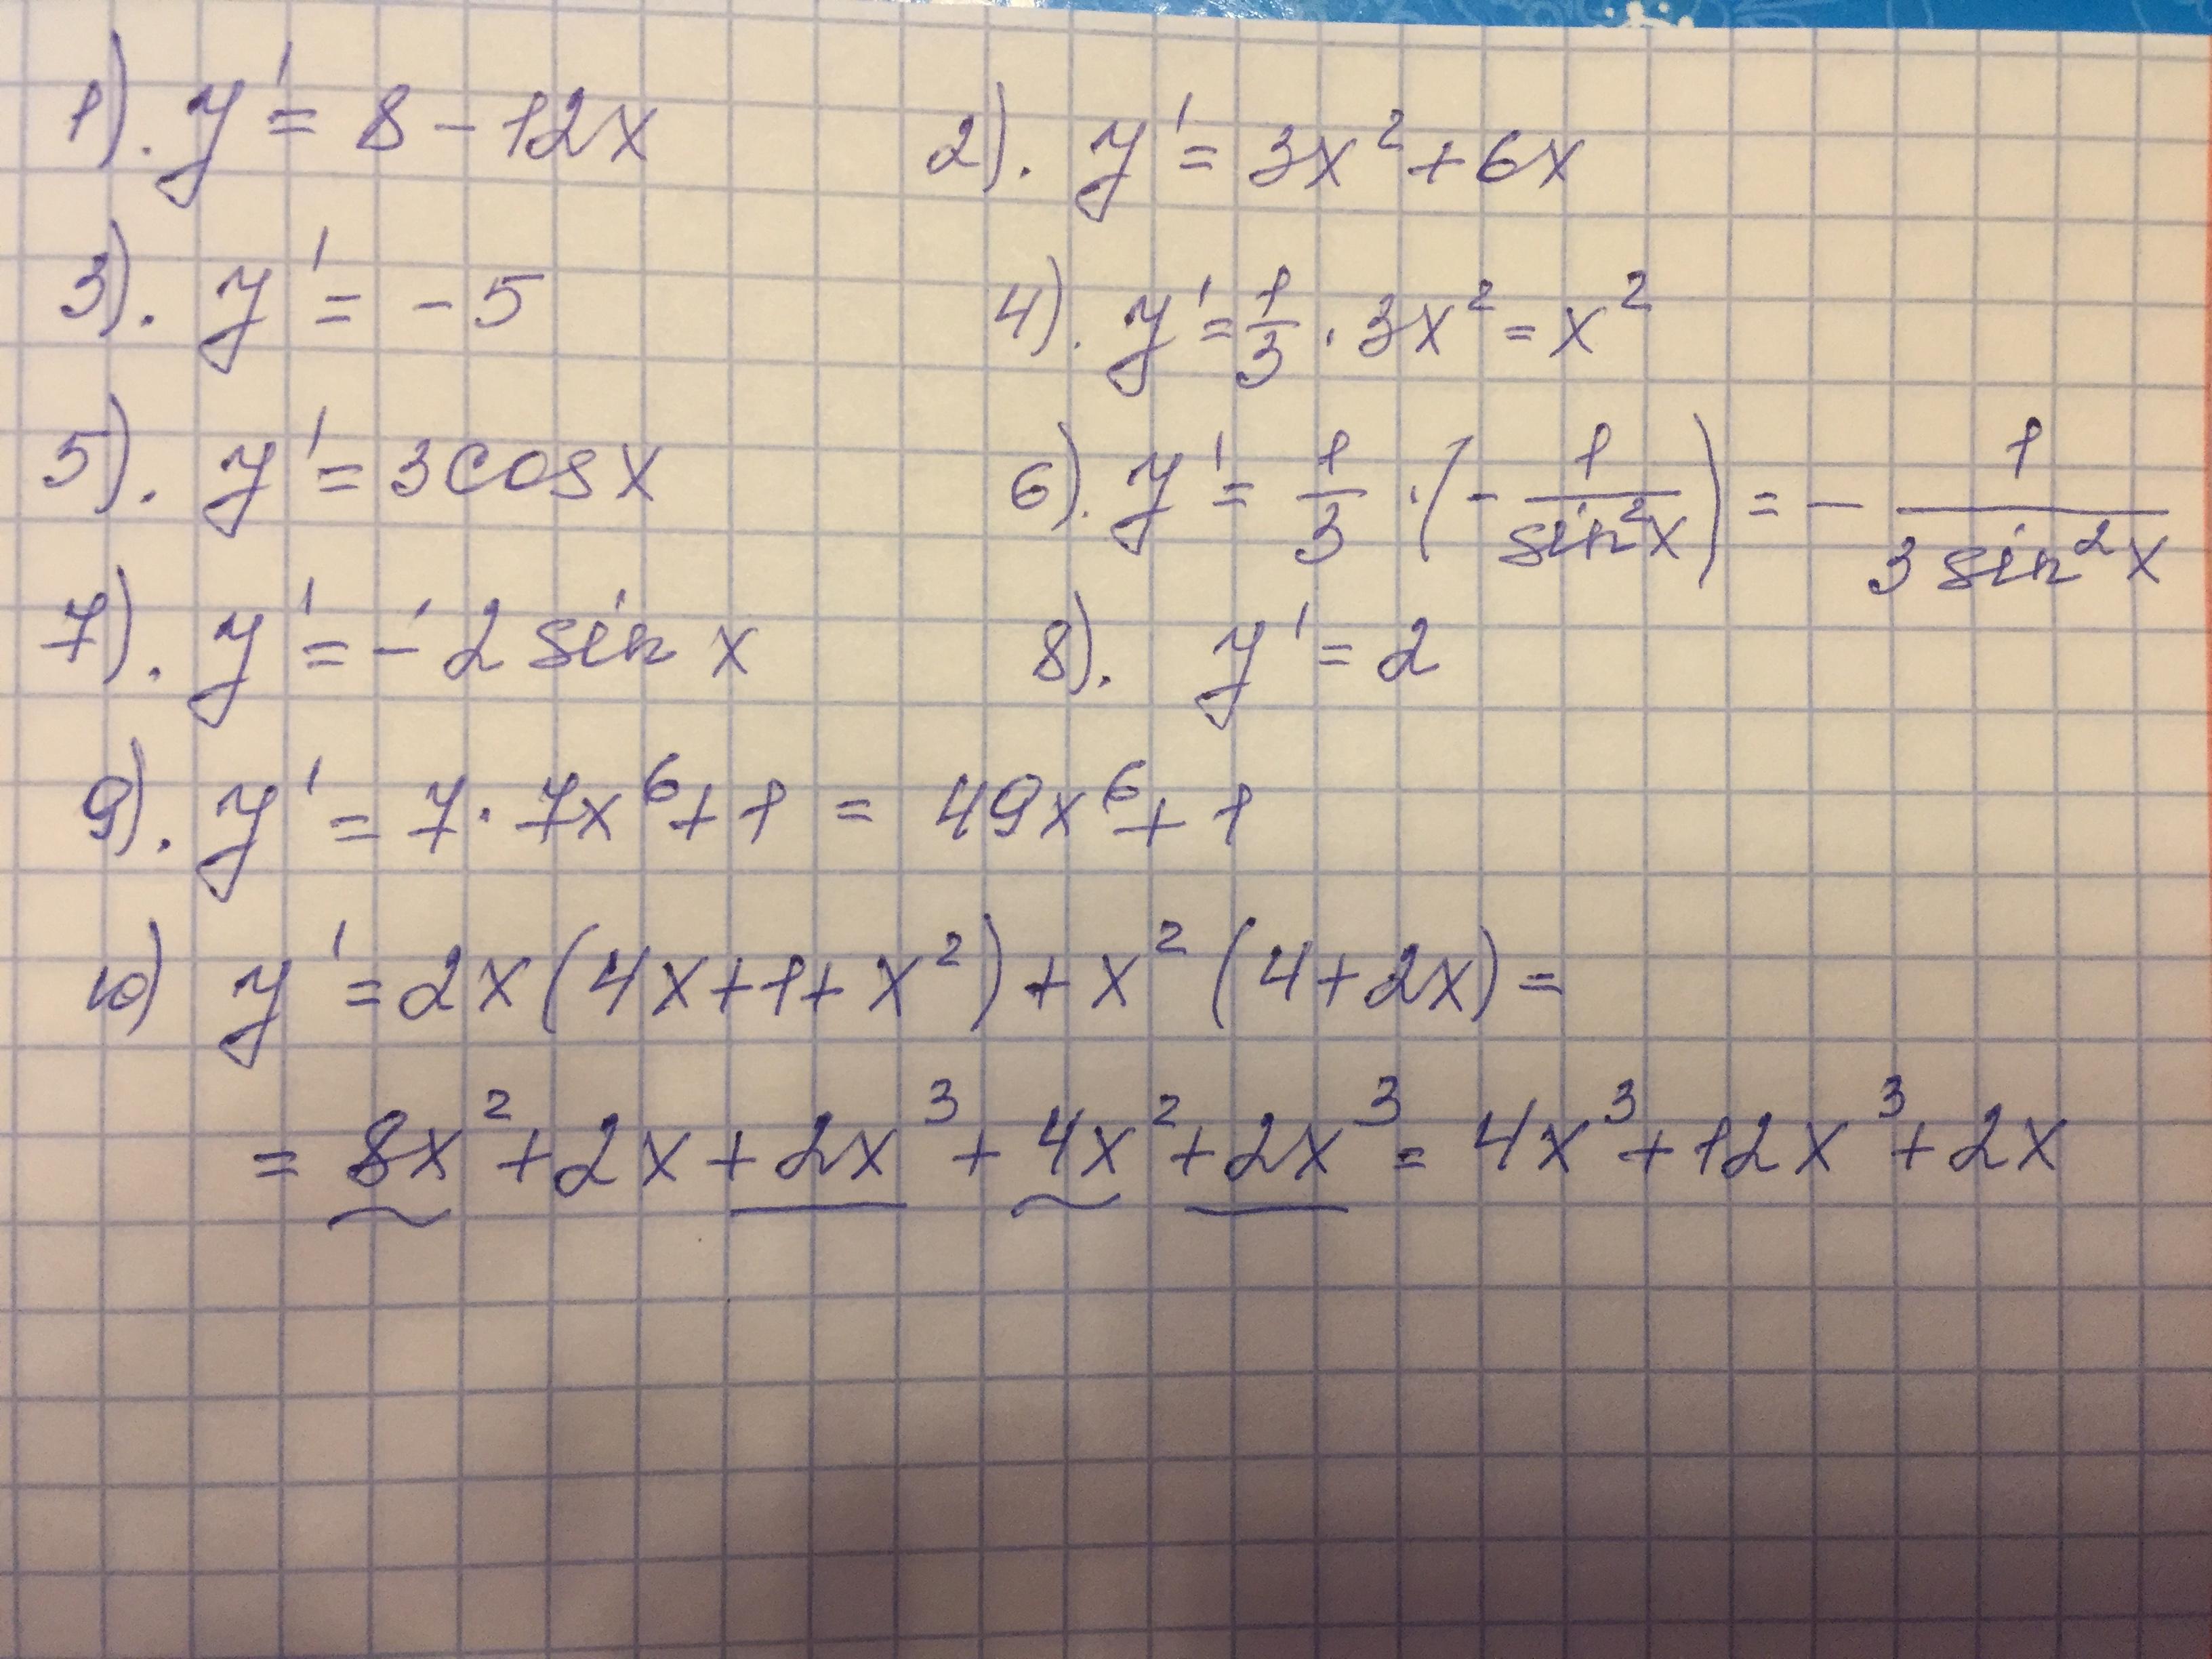 1). y' = 8 - 12x 2). y' = 3x² + 6x
3). y' = -5 4). y' = 1/3 · 3x² = x²
5). y' = 3cosx 6). y' = 1/3 · (- 1/sin²x) = - 1/3sin²x
7). y' = -2 sin x 8). y' = 2
9). y' = 7 · 7x⁶ + 1 = 49x⁶ + 1
10) y' = 2x(4x+1+x²) + x²(4+2x) =
= 8x² + 2x + 2x³ + 4x² + 2x³ = 4x³ + 12x³ + 2x